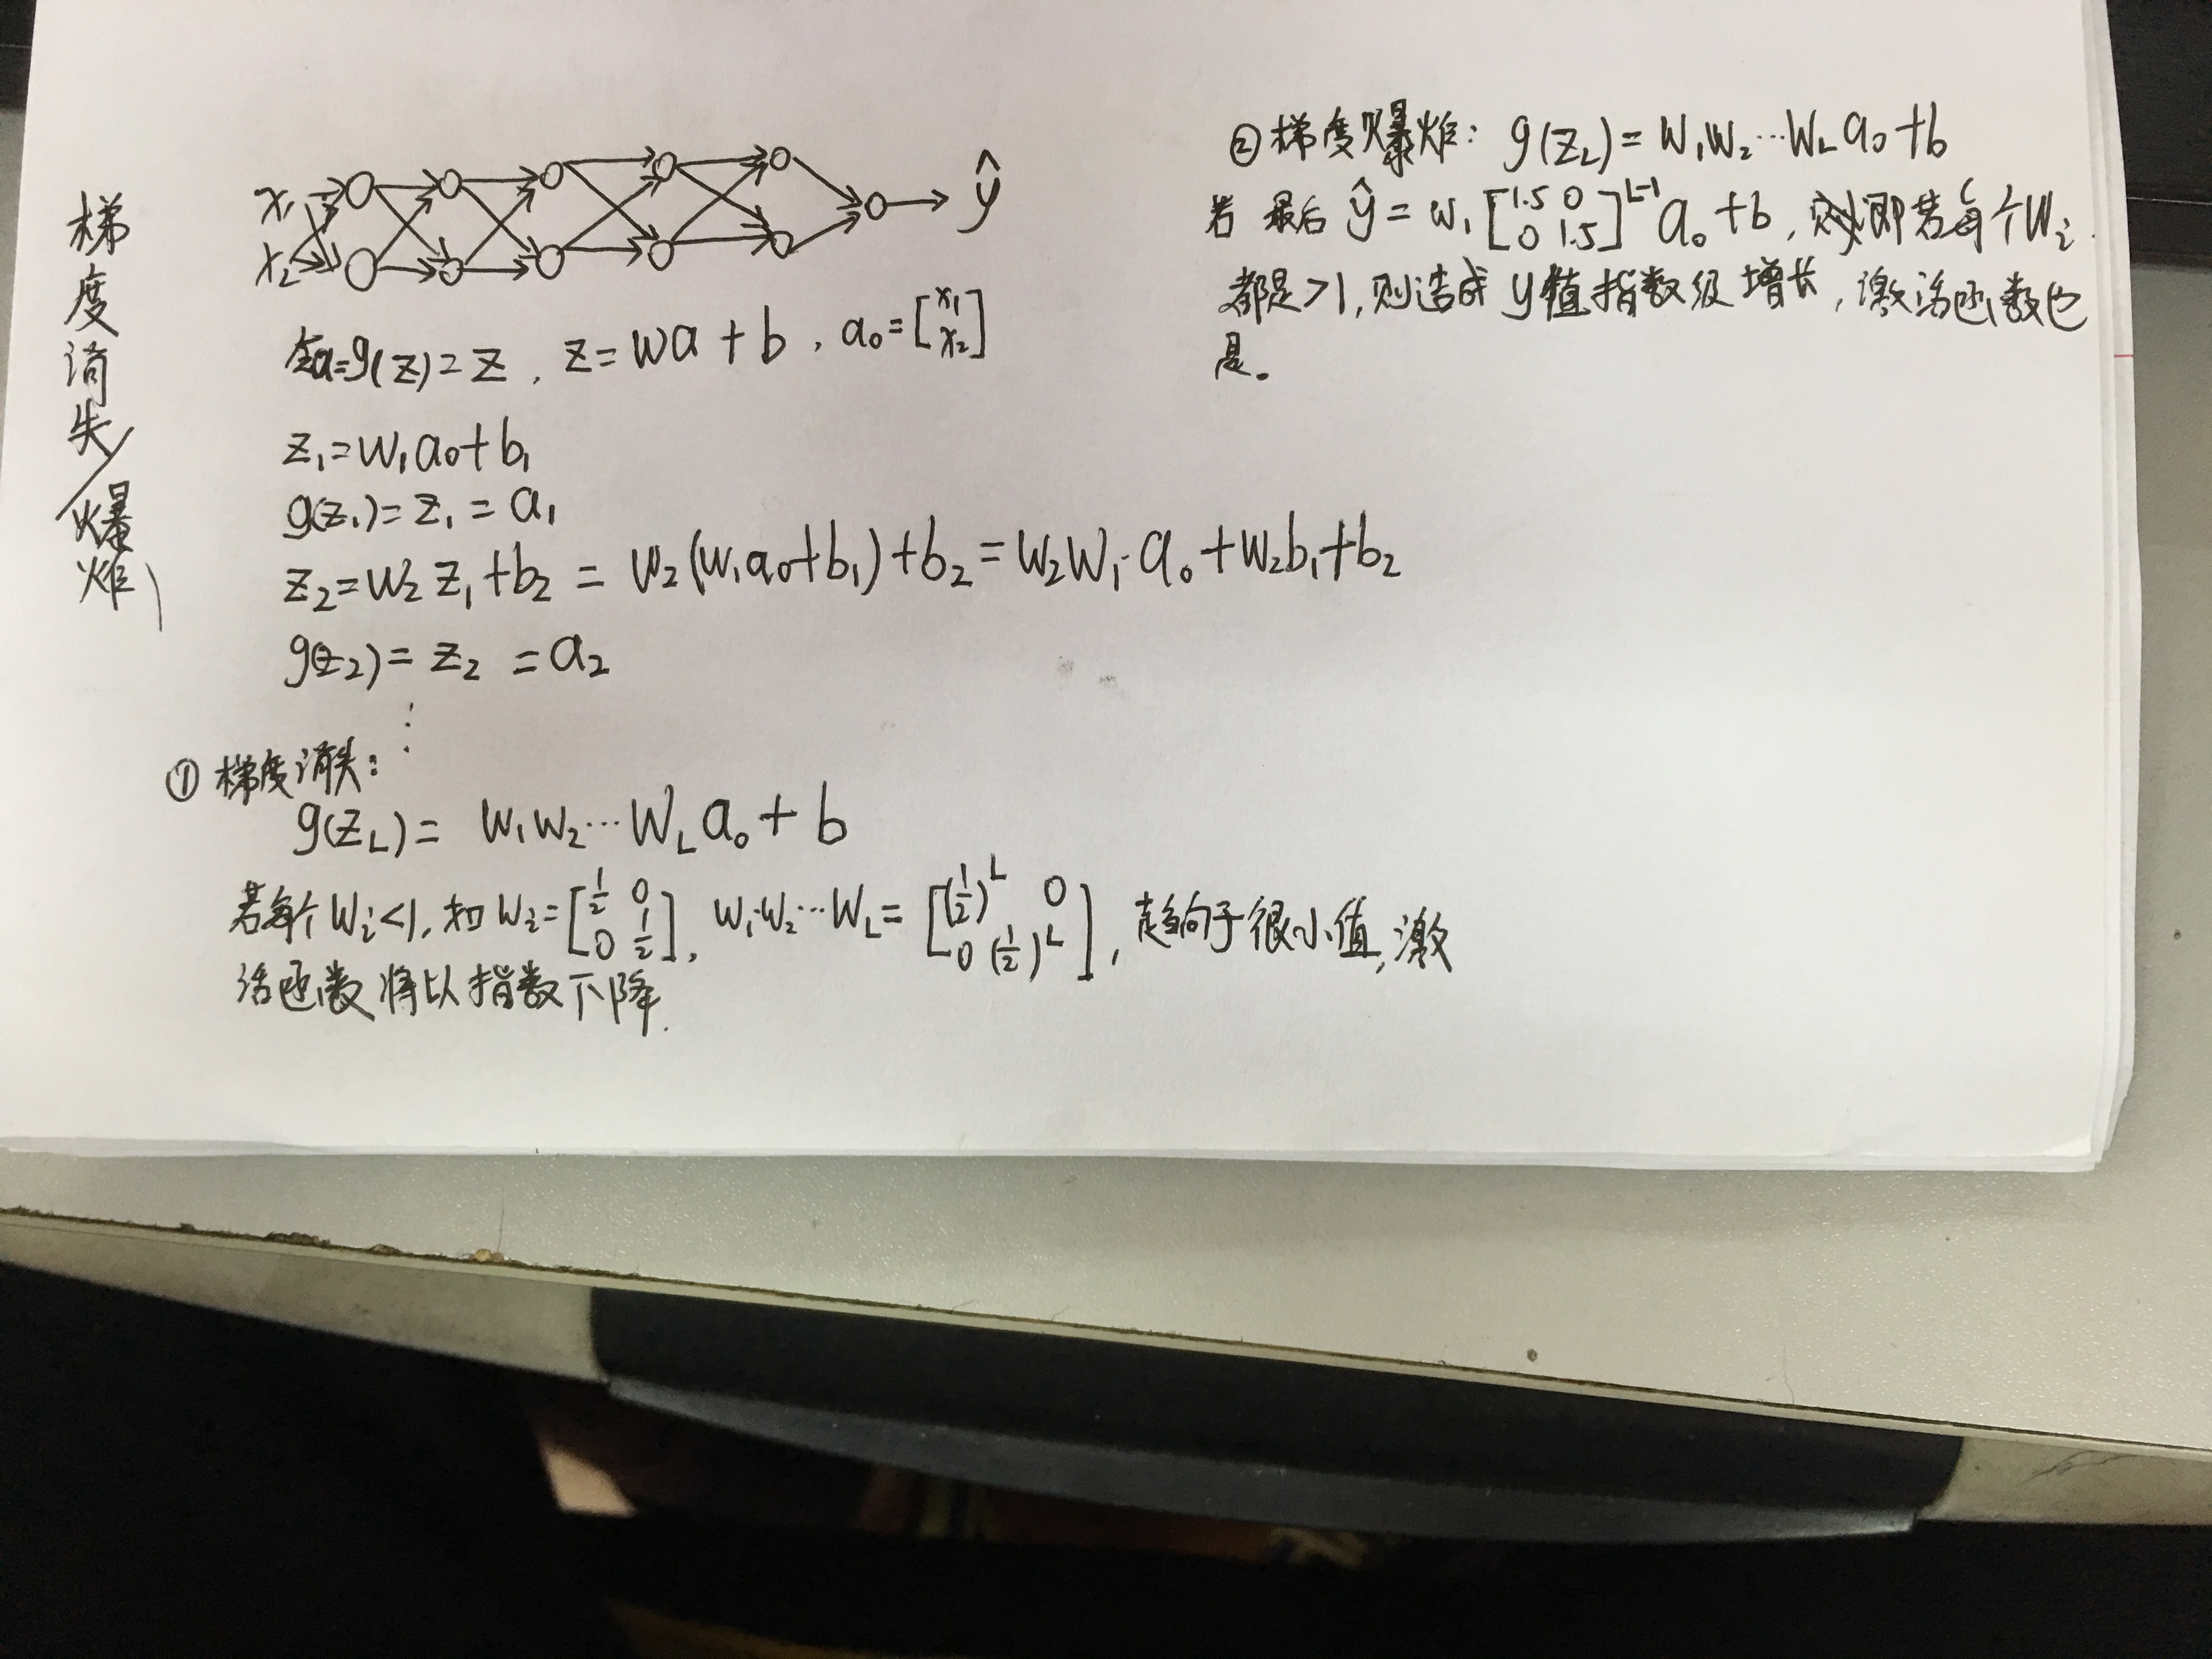 梯度消失/爆炸
x₁
x₂
ŷ
令a=g(z)=z, z=wa+b, a₀=[x₁ x₂]
z₁=w₁a₀+b₁
g(z₁)=z₁=a₁
z₂=w₂z₁+b₂=w₂(w₁a₀+b₁)+b₂=w₂w₁·a₀+w₂b₁+b₂
g(z₂)=z₂=a₂
⋮
①梯度消失:
g(z_L)=w₁w₂…w_L a₀+b
若每个wᵢ<1,如wᵢ=[½ 0; 0 ½], w₁·w₂…w_L=[(½)^L 0; 0 (½)^L], 趋向于很小值,激
活函数将以指数下降.
②梯度爆炸: g(z_L)=w₁w₂…w_L a₀+b
若最后ŷ=w₁[1.5 0; 0 1.5]^(L-1) a₀+b, 即若每个wᵢ
都是>1,则造成y值指数级增长,激活函数也
是。